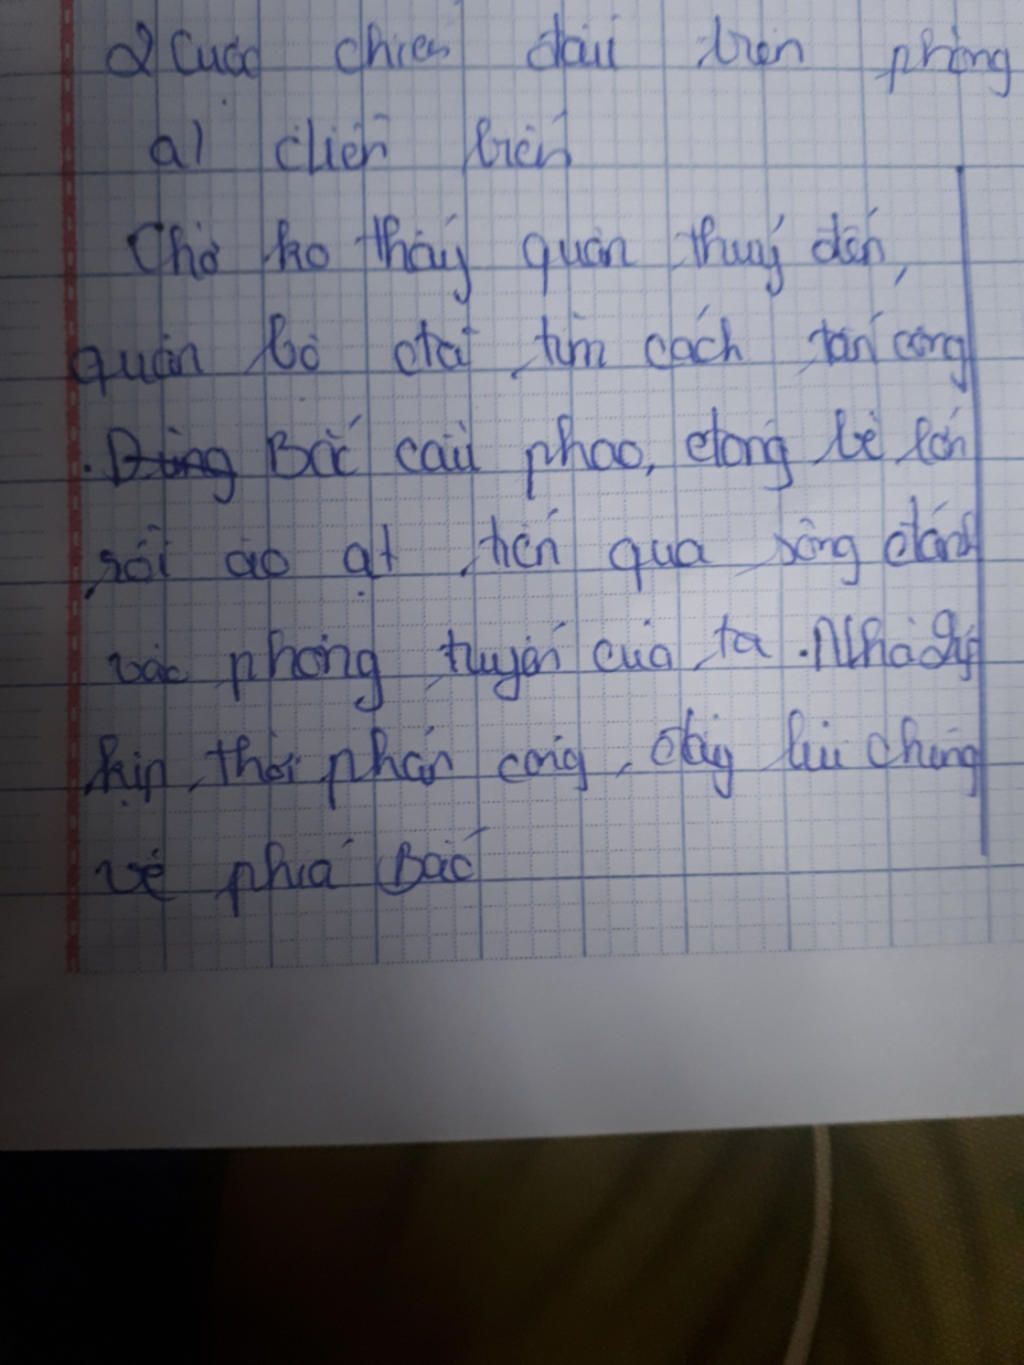 2 Cuộc chiến đấu trên phòng
a) diễn biến
Chờ ko thấy quân thuỷ đến,
quân bộ địch tìm cách tấn công
. Dùng Bắc cầu phao, đóng bè lớn
rồi ào ạt tiến qua sông đánh
vào phòng tuyến của ta. Nhà Lý
kịp thời phản công, đẩy lùi chúng
về phía Bắc